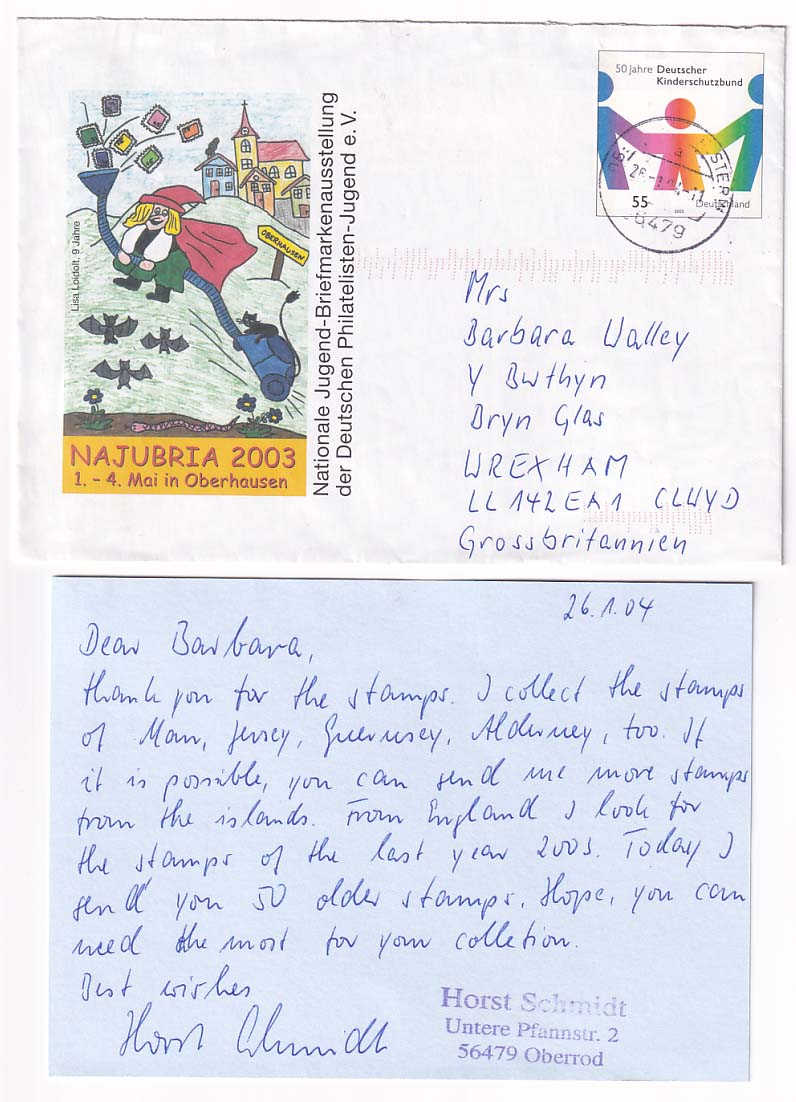 50 Jahre Deutscher
Kinderschutzbund
55
2003
Deutschland
26.-1.04-11
56479
OBERHAUSEN
Lisa Loidolt, 9 Jahre
NAJUBRIA 2003
1. - 4. Mai in Oberhausen
Nationale Jugend-Briefmarkenausstellung
der Deutschen Philatelisten-Jugend e. V.
Mrs
Barbara Walley
Y Bwthyn
Bryn Glas
WREXHAM
LL142EA1 CLWYD
Grossbritannien
26.1.04
Dear Barbara,
thank you for the stamps. I collect the stamps
of Man, Jersey, Guernsey, Alderney, too. If
it is possible, you can send me more stamps
from the islands. From England I look for
the stamps of the last year 2003. Today I
send you 50 older stamps. Hope, you can
need the most for your colletion.
Best wishes
Horst Schmidt
Horst Schmidt
Untere Pfannstr. 2
56479 Oberrod